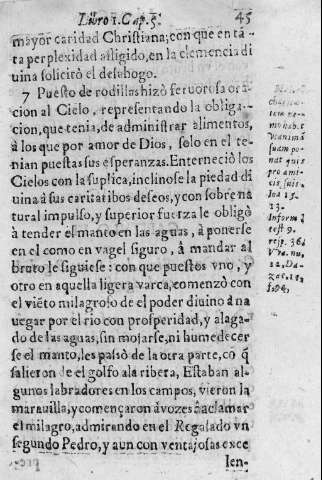 Libro 1. Cap. 5. 45
mayor caridad Christiana; con que en tã
ta perplexidad afligido, en la clemencia di
uina solicitò el desahogo.
7 Puesto de rodillas hizo feruorosa ora
cion al Cielo, representando la obliga-
cion, que tenia, de administrar alimentos,
à los que por amor de Dios, solo en el te-
nian puestas sus esperanzas. Enterneciò los
Cielos con la suplica, inclinose la piedad di
uina à sus caritatibos deseos, y con sobrena
tural impulso, y superior fuerza le obligò
à tender el manto en las aguas, à ponerse
en el como en vagel siguro, à mandar al
bruto le siguiese: con que puestos vno, y
otro en aquella ligera varca, comenzò con
el viẽto milagroso de el poder diuino à na
uegar por el rio con prosperidad, y alaga-
do de las aguas, sin mojarse, ni humedecer
se el manto, les pasò de la otra parte, cõ q̃
salieron de el golfo ala ribera, Estaban al-
gunos labradores en los campos, vieron la
marauilla, y començaron à vozes à aclamar
el milagro, admirando en el Regalado vn
segundo Pedro, y aun con ventajosas exce
len-
tem ne-
mo habet
vt animã
suam po-
nat quis
pro ami-
cis suis.
Ioa 15.
13.
Inform.
test 9.
resp. 36.